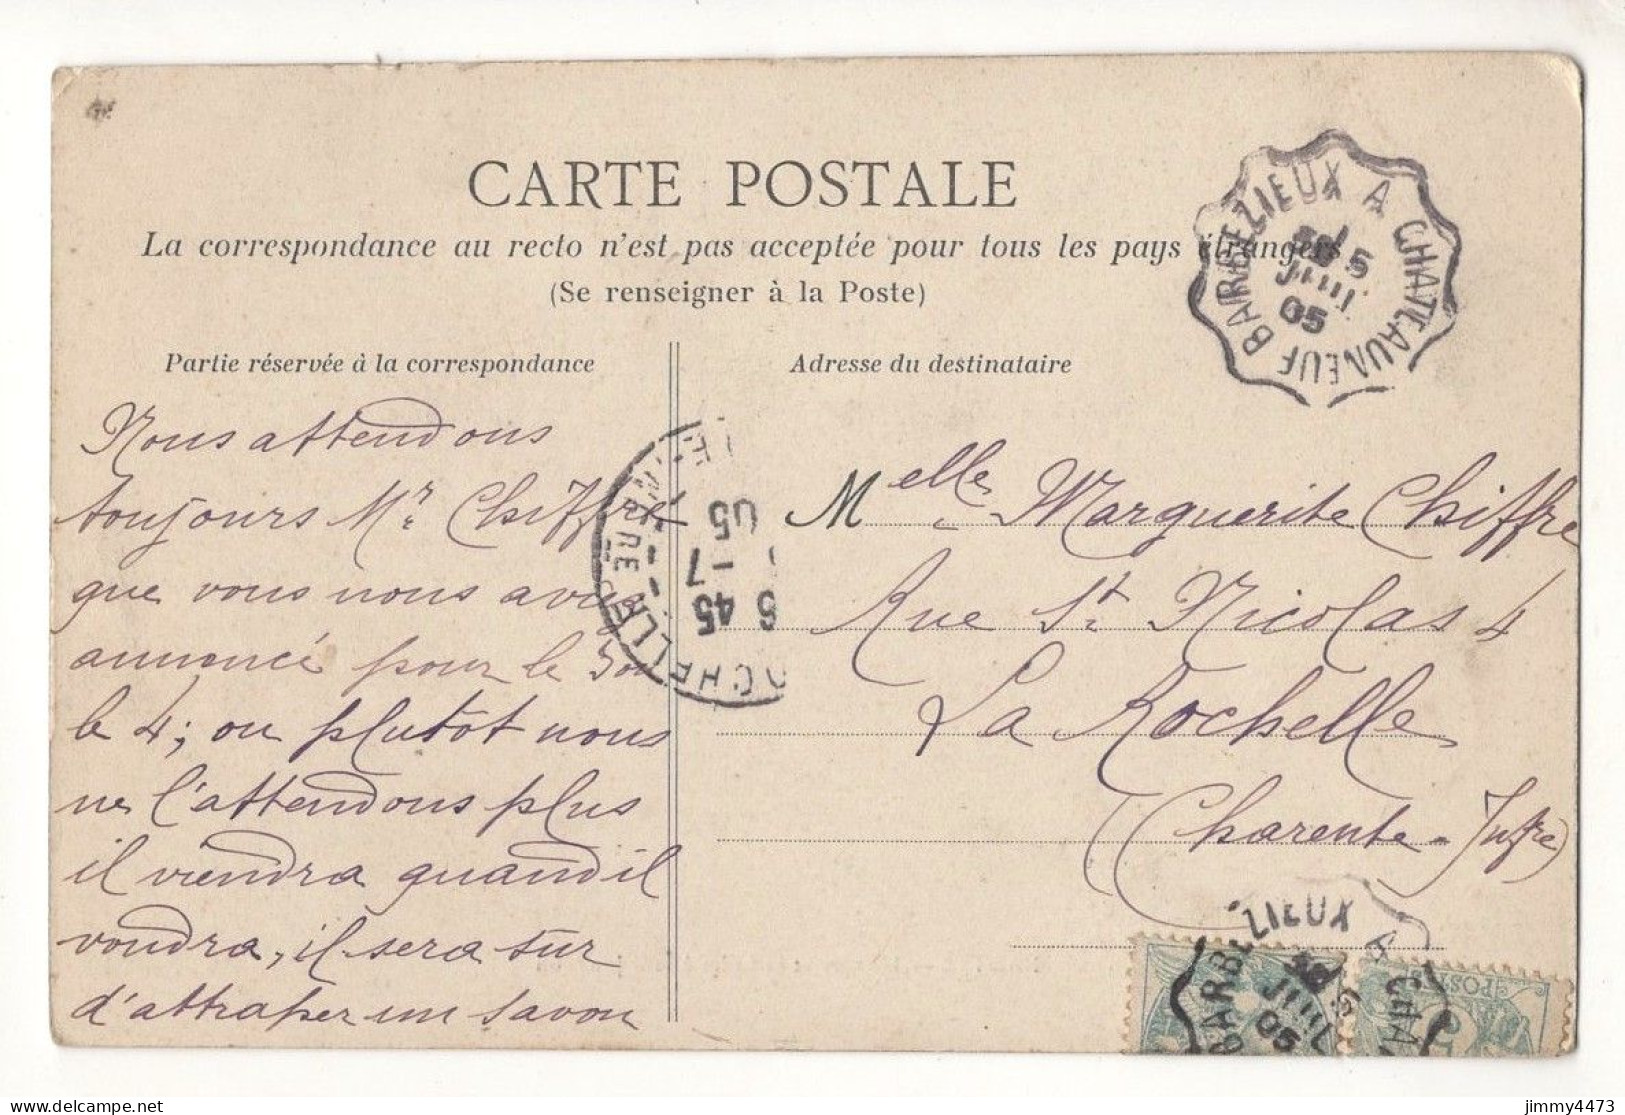 CARTE POSTALE
La correspondance au recto n'est pas acceptée pour tous les pays étrangers
(Se renseigner à la Poste)
Partie réservée à la correspondance
Nous attendons
toujours Mr. Chiffre
que vous nous aviez
annoncé pour le 3 ou
le 4; ou plutot nous
ne l'attendons plus
il viendra quand il
voudra, il sera sur
d'attraper un savon
Adresse du destinataire
Melle Marguerite Chiffre
Rue St. Nicolas 4
La Rochelle
(Charente-Infre)
BARBEZIEUX A CHATEAUNEUF
5
JUIL
05
OCHELLE
6 45
-7
05
BARBEZIEUX A CH
JUIL
05
POST
delcampe.net
jimmy4473